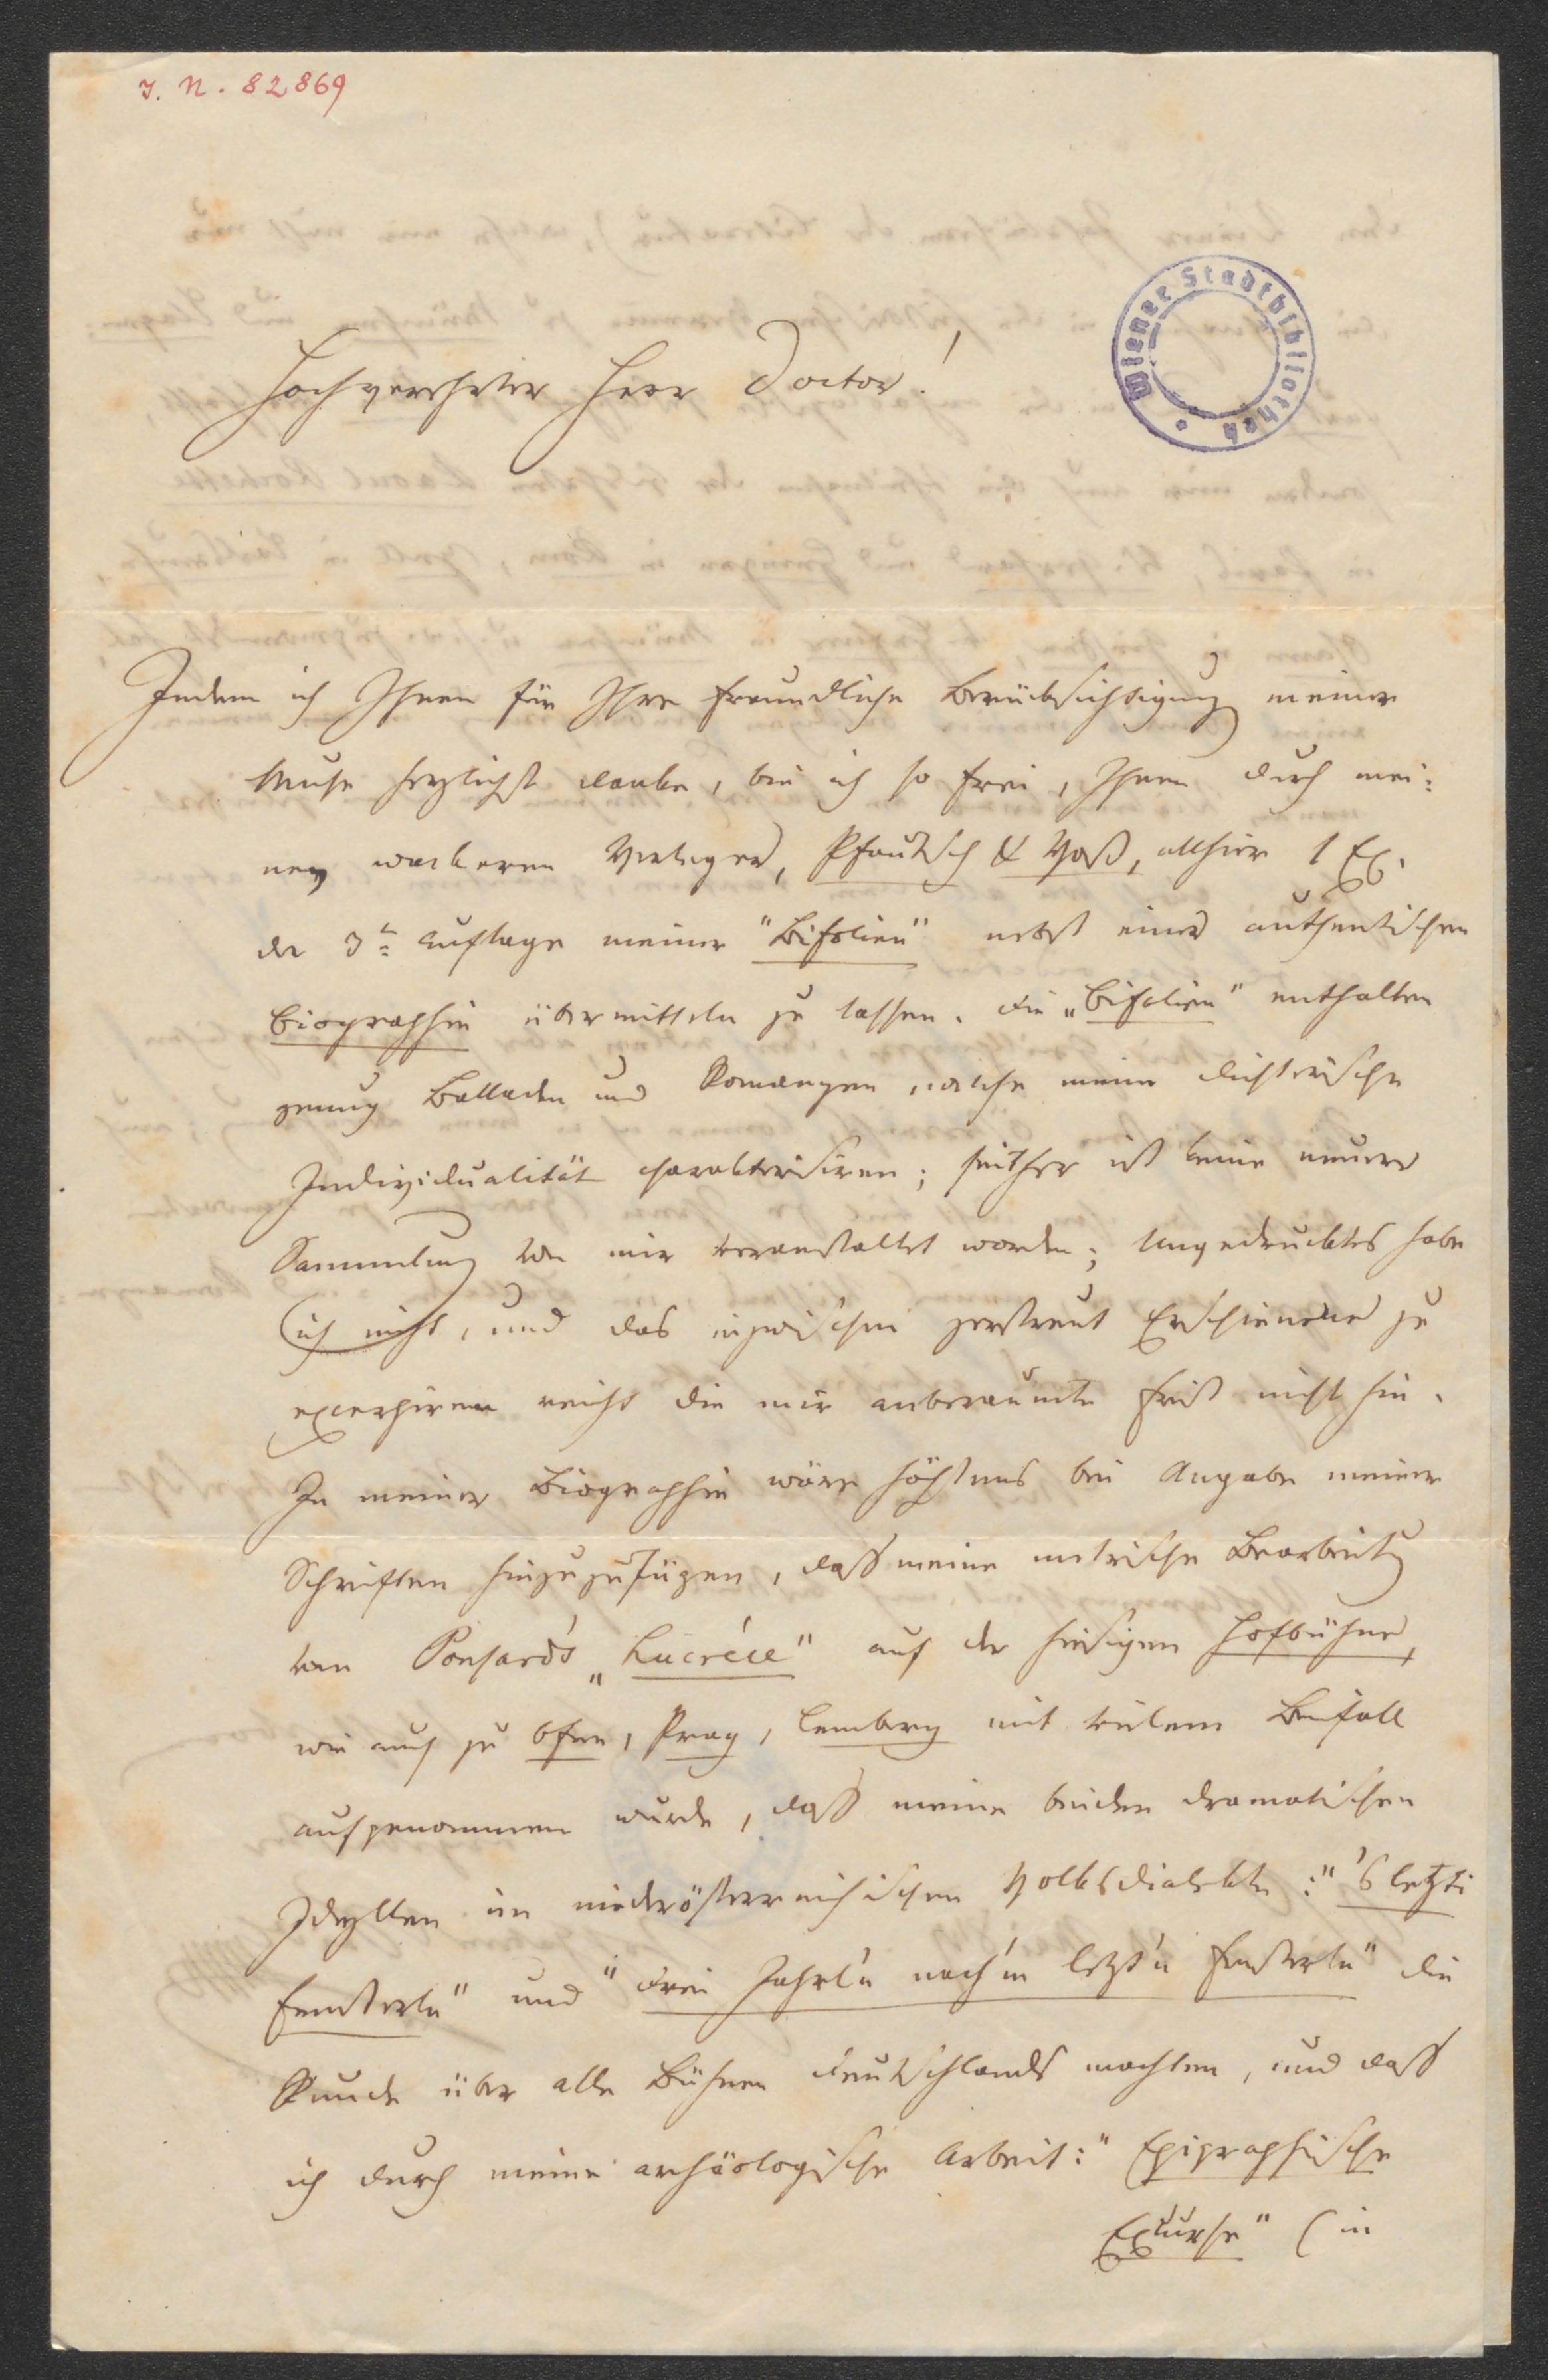 I. N. 82869
Wiener Stadtbibliothek
Hochverehrter Herr Doctor!
Indem ich Ihnen für Ihre freundliche Berücksichtigung meiner
Muse herzlichst danke, bin ich so frei, Ihnen durch mei:
nen wackeren Verleger, Pfautsch & Voß, allhier 1 Ex.
der 3t Auflage meiner "Bifolien" nebst einer authentischen
Biographie übermitteln zu lassen. Die "Bifolien" enthalten
genug Balladen und Romanzen, welche meine dichterische
Individualität charakterisiren; seither ist keine neuere
Sammlung von mir veranstaltet worden; Ungedrucktes habe
ich nicht, und das inzwischen zerstreut Erschienene zu
excerpiren reicht die mir anberaumte Frist nicht hin.
In meiner Biographie wäre höchstens bei Angabe meiner
Schriften hinzuzufügen, daß meine metrische Bearbeitg
von Ponsard's "Lucréce" auf der hiesigen Hofbühne,
wie auch zu Ofen, Prag, Lemberg mit vielem Beifall
aufgenommen wurde, daß meine beiden dramatischen
Idyllen im niederösterreichischen Volksdialekte: "'s letzti
Fensterln" und "Drei Jahrl'n nach'm letzt'n Fensterln" die
Runde über alle Bühnen Deutschlands machten, und daß
ich durch meine archäologische Arbeit: "Epigraphische
Excurse" (in